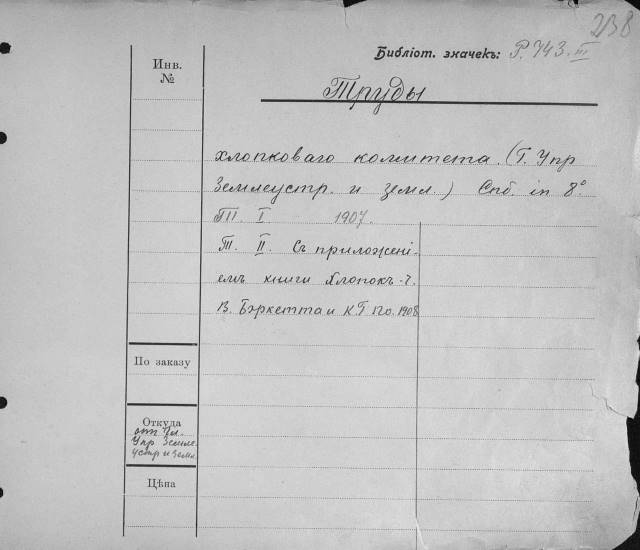 238
Библіот. значекъ: P. 743. III
Инв.
№
Труды
хлопковаго комитета. (Г. Упр
Землеустр. и земл.) Спб. in 8º
Т. I 1907.
Т. II. Съ приложені-
емъ книги Хлопокъ - Ч.
В. Бэркетта и К Г По. 1908
По заказу
Откуда
отъ Гл.
Упр Земле
устр и Земл.
Цѣна